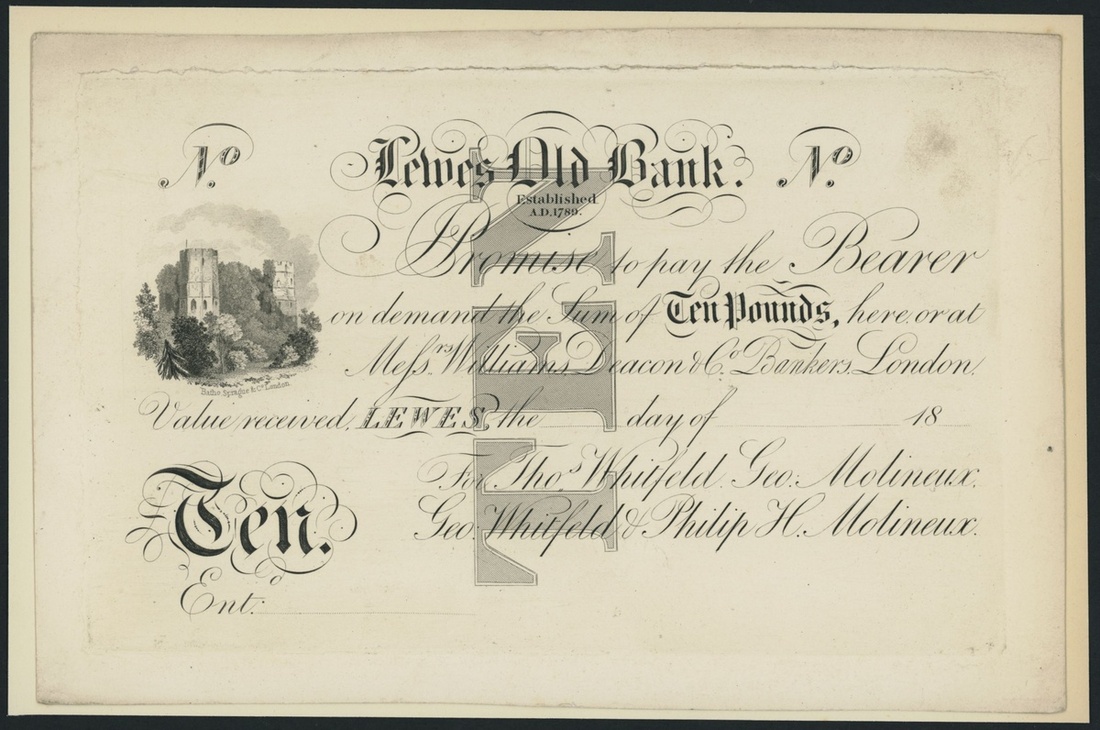 No. Lewes Old Bank. No.
Established
A.D. 1789.
Promise to pay the Bearer
on demand the Sum of Ten Pounds, here or at
Messrs. Williams Deacon & Co. Bankers London.
Bathe, Sprague & Co. London
Value received, LEWES, the day of 18
For Thos. Whitfeld. Geo. Molineux.
Geo. Whitfeld & Philip H. Molineux.
Ten.
Entd.
TEN